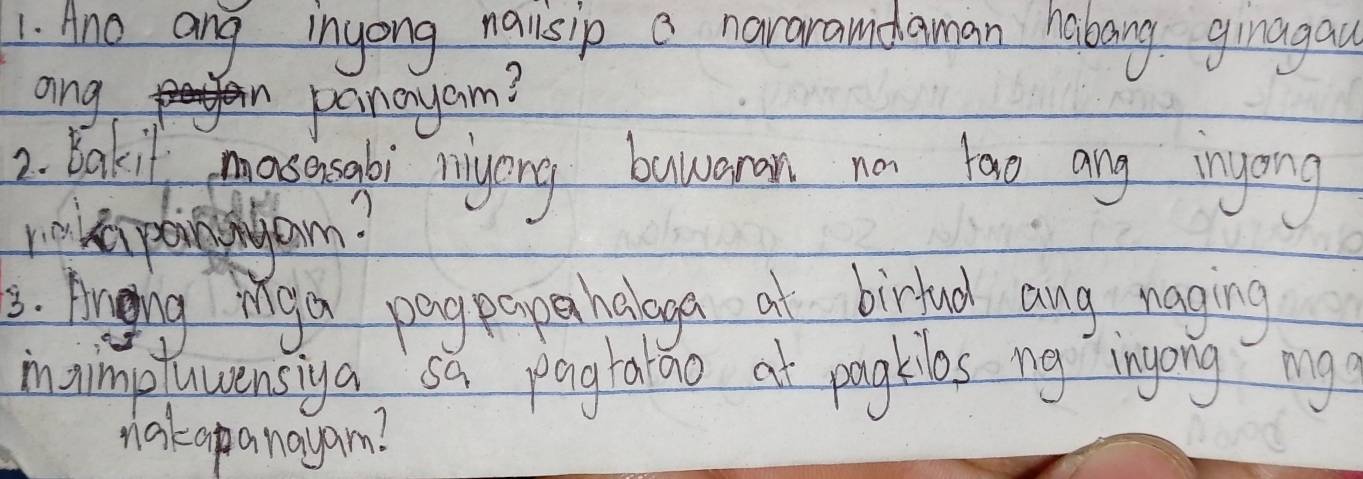 1. Ano ang inyong naiisip o nararamdaman habang ginagaw
ang panayam?
2. Bakit masasabi niyong buwaran na tao ang inyong
nakapanayam?
3. Anong mga pagpapahalaga at birtud ang naging
maimpluwensiya sa pagtatao at pagkilos ng inyong mga
nakapanayam?